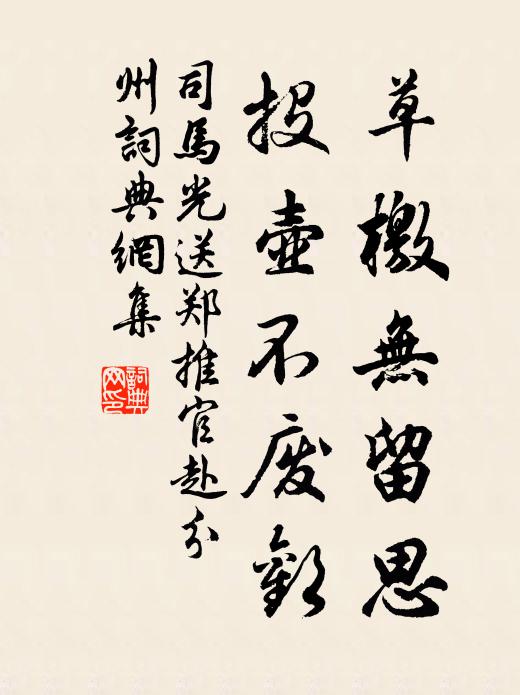 草檄無留思
投壺不废歡
司馬光送郑推官赴分
州詞典網集
詞典
网印